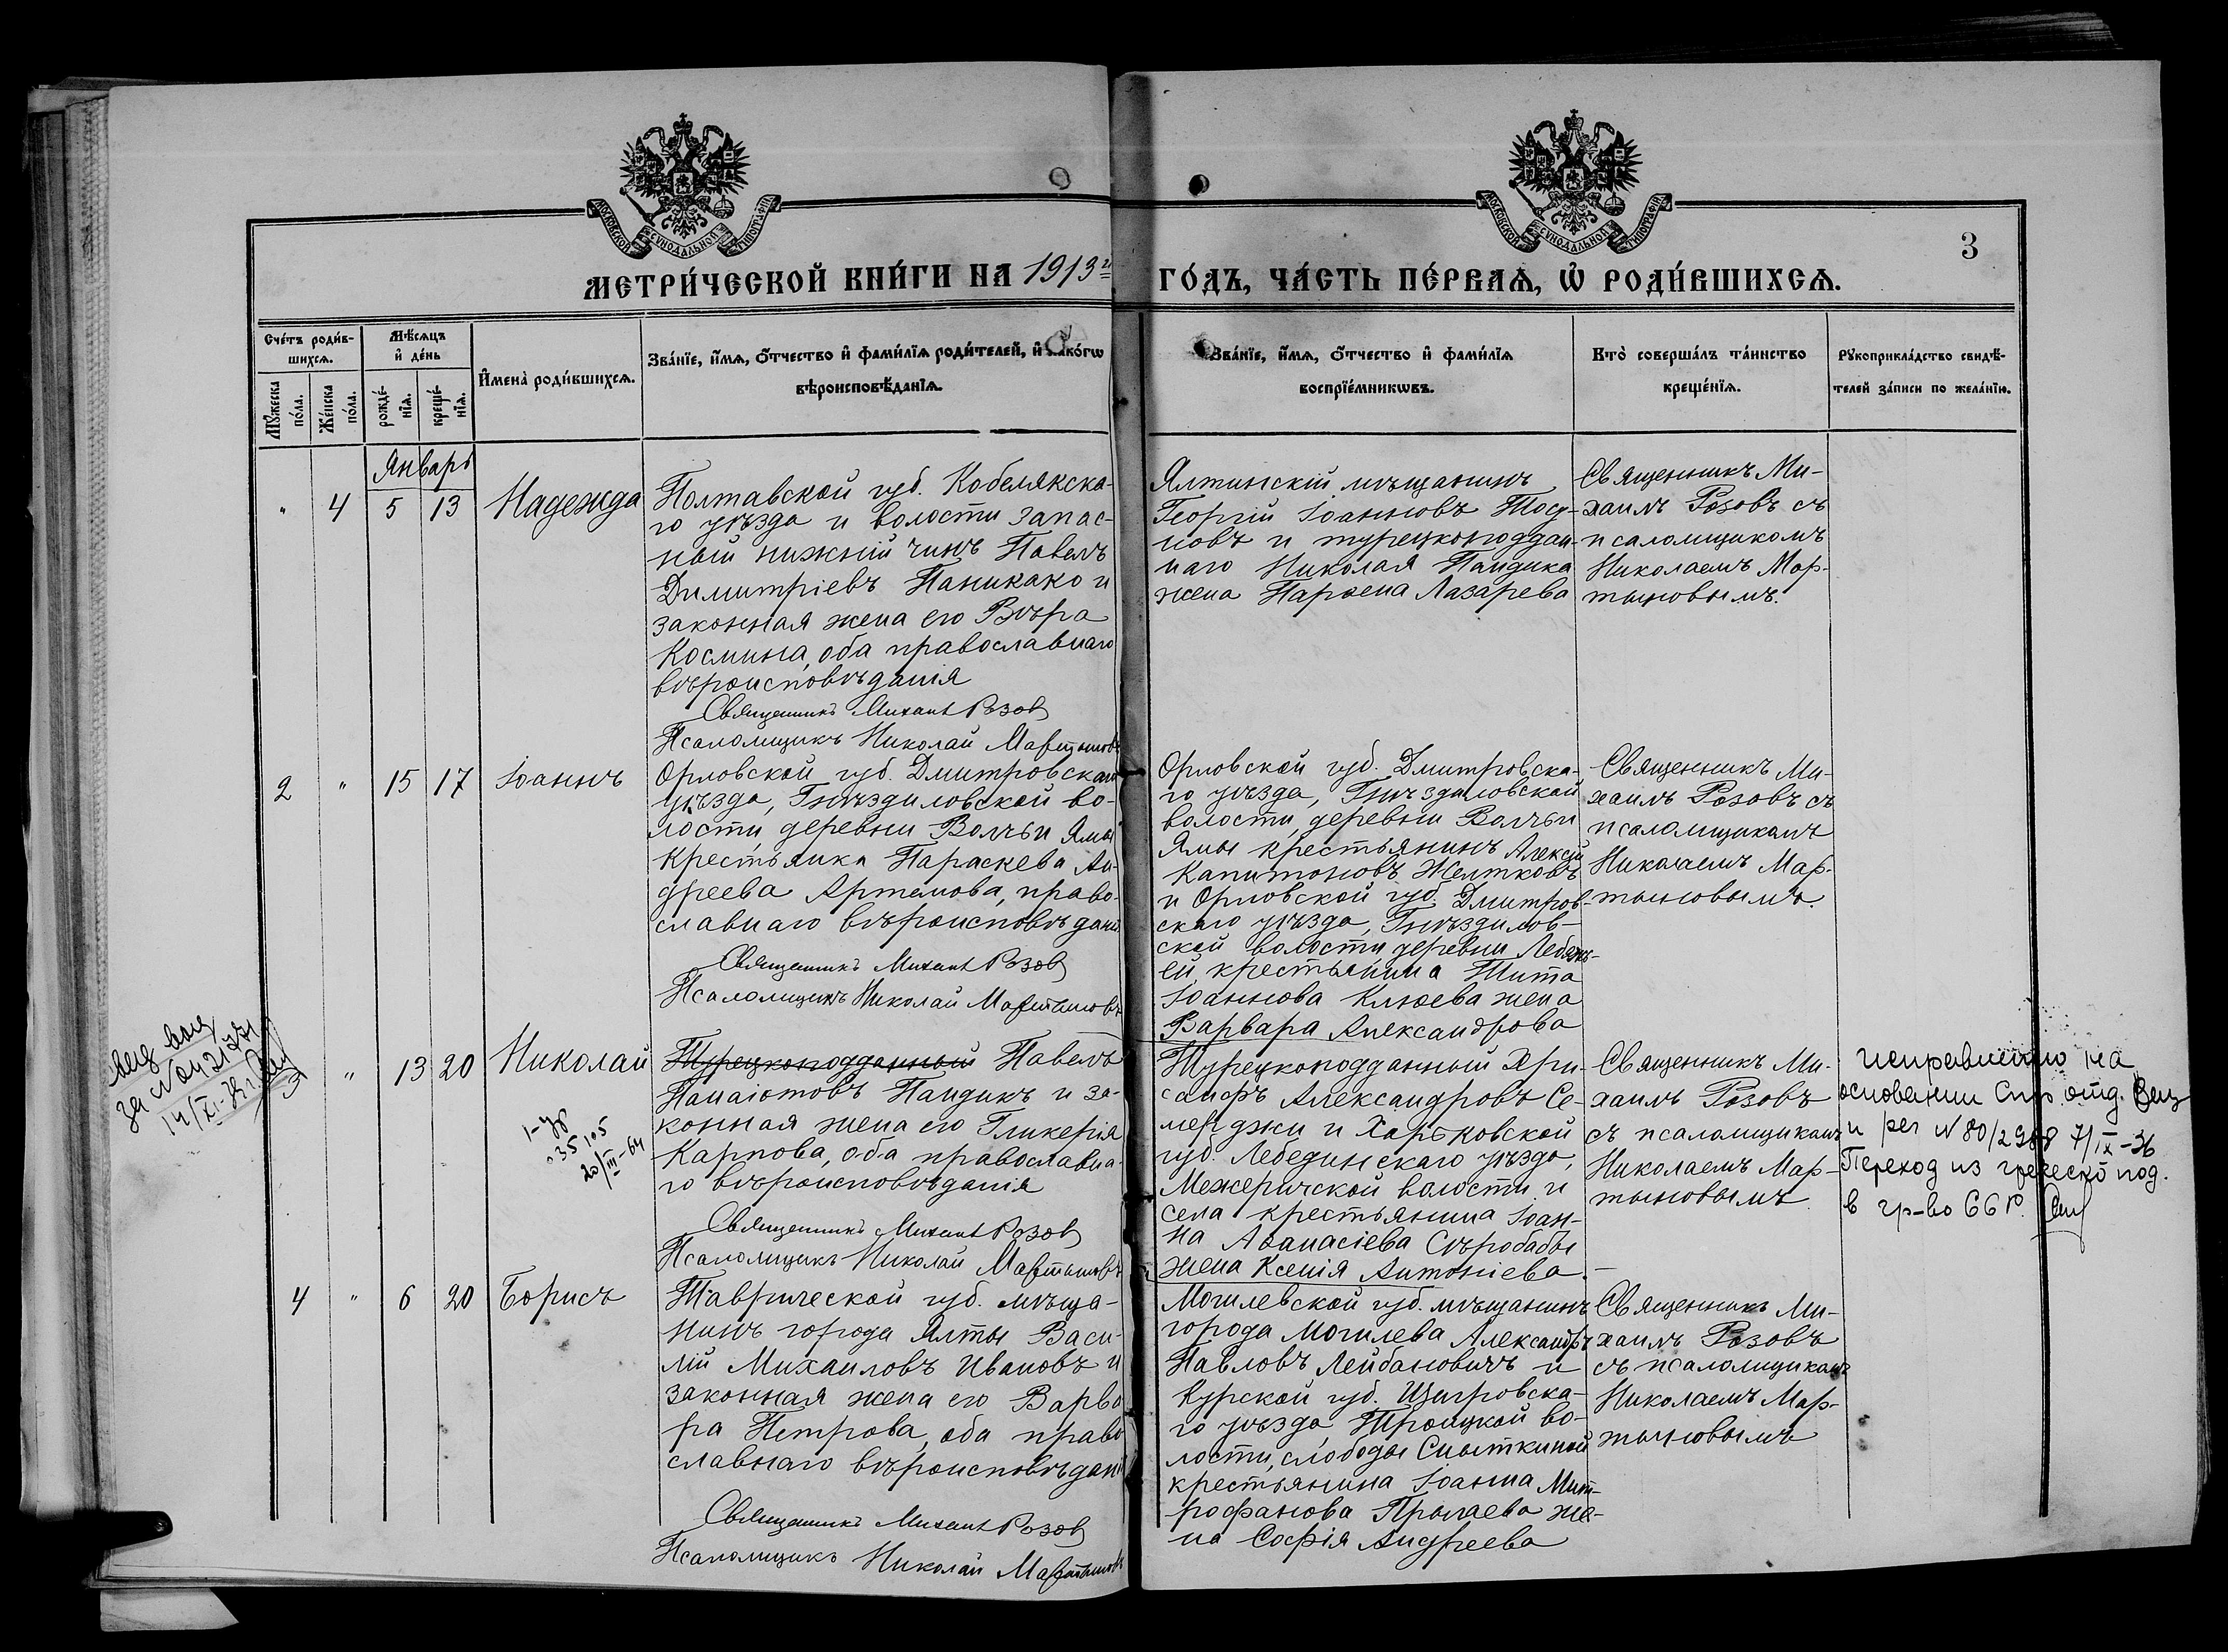 МОСКОВСКОЙ СѴНОДАЛЬНОЙ ТИПОГРАФІИ
МОСКОВСКОЙ СѴНОДАЛЬНОЙ ТИПОГРАФІИ
3
МЕТРИ́ЧЕСКОЙ КНИ́ГИ НА 1913 й ГО́ДЪ, ЧА́СТЬ ПЕ́РВАѦ, Ѽ РОДИ́ВШИХСѦ.
Сче́тъ роди́в-
шихсѧ.
Мꙋ́жеска
по́ла.
Же́нска
по́ла.
Мѣ́сѧцъ
и҆ де́нь
рожде́-
нїѧ.
креще́-
нїѧ.
И҆мена̀ роди́вшихсѧ.
Зва́нїе, и҆́мѧ, ѻ҆́тчество и҆ фами́лїѧ роди́телей, и҆ како́гѡ
вѣроисповѣ́данїѧ.
Зва́нїе, и҆́мѧ, ѻ҆́тчество и҆ фами́лїѧ
воспрїе́мникѡвъ.
Кто̀ соверша́лъ та́инство
креще́нїѧ.
Рꙋкоприкла́дство свидѣ́-
телей за́писи по жела́нїю.
Январь
" 4 5 13 Надежда
Полтавской губ. Кобелякска-
го уѣзда и волости запас-
ный нижній чинъ Павелъ
Димитріевъ Паникако и
законная жена его Вѣра
Космина, оба православнаго
вѣроисповѣданія
Священникъ Михаилъ Розовъ
Псаломщикъ Николай Мартыновъ
Ялтинскій мѣщанинъ
Георгій Іоанновъ
новъ и турецкоподдан-
наго Николая Пандика
жена Парѳена Лазарева
Священникъ Ми-
хаилъ Розовъ съ
псаломщикомъ
Николаемъ Мар-
тыновымъ.
2 " 15 17 Іоаннъ
Орловской губ. Дмитровскаго
уѣзда, Гнѣздиловской во-
лости, деревни Волчьи Ямы
крестьянка Параскева Ан-
дреева Артемова, право-
славнаго вѣроисповѣданія
Священникъ Михаилъ Розовъ
Псаломщикъ Николай Мартыновъ
Орловской губ. Дмитровска-
го уѣзда, Гнѣздиловской
волости, деревни Волчьи
Ямы крестьянинъ Алексѣй
Капитоновъ Желтковъ
и Орловской губ. Дмитров-
скаго уѣзда, Гнѣздилов-
ской волости, деревни Лебяжь-
ей, крестьянина Тита
Іоаннова Клюева жена
Варвара Александрова
Священникъ Ми-
хаилъ Розовъ съ
псаломщикомъ
Николаемъ Мар-
тыновымъ.
за №
14/XI-
3 " 13 20 Николай
1-
035105
20/III-64
Турецкоподданный Павелъ
Панаіотовъ Пандикъ и за-
конная жена его Гликерія
Карпова, оба православна-
го вѣроисповѣданія
Священникъ Михаилъ Розовъ
Псаломщикъ Николай Мартыновъ
Турецкоподданный Хри-
санфъ Александровъ Се-
мерджи и Харьковской
губ. Лебединскаго уѣзда,
Межеричской волости и
села крестьянина Іоан-
на Аѳанасіева Сѣробабы
жена Ксенія Антоніева.
Священникъ Ми-
хаилъ Розовъ
съ псаломщикомъ
Николаемъ Мар-
тыновымъ
исправлено на
основании отд.
и рег N 80/2988 7/IX-36
Переход из греческо под.
в гр-во ССР.
4 " 6 20 Борисъ
Таврической губ. мѣща-
нинъ города Ялты Васи-
лій Михаиловъ Ивановъ и
законная жена его Варва
ра Петрова, оба право
славнаго вѣроисповѣданія
Священникъ Михаилъ Розовъ
Псаломщикъ Николай Мартыновъ
Могилевской губ. мѣщанинъ
города Могилева Александръ
Павловъ Лейбановичъ и
Курской губ. Щигровска-
го уѣзда, Троицкой во-
лости, слободы Сныткиной
крестьянина Іоанна Мит-
рофанова Пралаева же-
на Софія Андреева
Священникъ Ми-
хаилъ Розовъ
съ псаломщикомъ
Николаемъ Мар-
тыновымъ